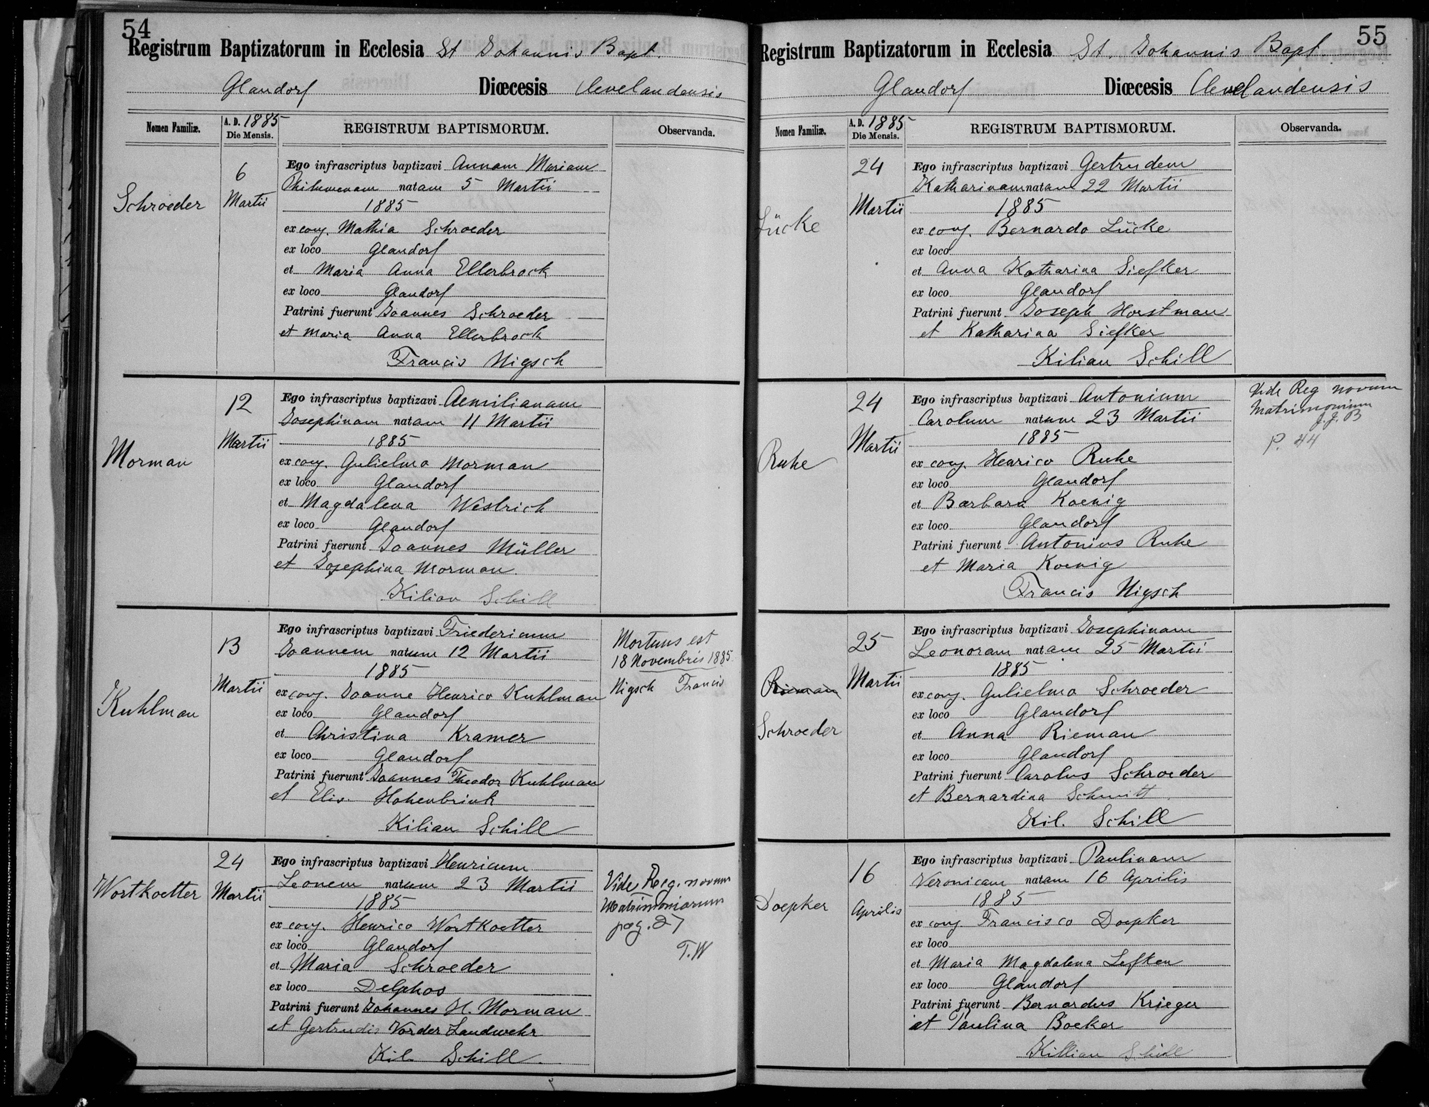 54
Registrum Baptizatorum in Ecclesia St Johannis Bapt.
Glandorf Diœcesis Clevelandensis
Nomen Familiæ. A. D. 1885 Die Mensis. REGISTRUM BAPTISMORUM. Observanda.
Schroeder
6
Martii
Ego infrascriptus baptizavi Annam Mariam
Philomenam natam 5 Martii
1885
ex conj. Mathia Schroeder
ex loco Glandorf
et Maria Anna Ellerbrock
ex loco Glandorf
Patrini fuerunt Joannes Schroeder
et Maria Anna Ellerbrock
Francis Nigsch
Morman
12
Martii
Ego infrascriptus baptizavi Aemilianam
Josephinam natam 11 Martii
1885
ex conj. Gulielmo Morman
ex loco Glandorf
et Magdalena Westrich
ex loco Glandorf
Patrini fuerunt Joannes Müller
et Josephina Morman.
Kilian Schill
Kuhlman
13
Martii
Ego infrascriptus baptizavi Friedericum
Joannem natum 12 Martii
1885
ex conj. Joanne Henrico Kuhlman
ex loco Glandorf
et Christina Kramer
ex loco Glandorf
Patrini fuerunt Joannes Theodor Kuhlman
et Elis. Hohenbrink
Kilian Schill
Mortuus est
18 Novembris 1885
Nigsch Francis
Wortkoetter
24
Martii
Ego infrascriptus baptizavi Henricum
Leonem natum 23 Martii
1885
ex conj. Henrico Wortkoetter
ex loco Glandorf
et Maria Schroeder
ex loco Delphos
Patrini fuerunt Johannes H. Morman
et Gertrudis Vorder Landwehr
Kil. Schill
Vide Reg. novum
Matrimoniorum
pag. 27
T.W
55
Registrum Baptizatorum in Ecclesia St. Johannis Bapt.
Glandorf Diœcesis Clevelandensis
Nomen Familiæ. A. D. 1885 Die Mensis. REGISTRUM BAPTISMORUM. Observanda.
Lücke
24
Martii
Ego infrascriptus baptizavi Gertrudem
Katharinam natam 22 Martii
1885
ex conj. Bernardo Lücke
ex loco
et Anna Katharina Siefker
ex loco Glandorf
Patrini fuerunt Joseph Horstman
et Katharina Siefker
Kilian Schill
Ruhe
24
Martii
Ego infrascriptus baptizavi Antonium
Carolum natum 23 Martii
1885
ex conj. Henrico Ruhe
ex loco Glandorf
et Barbara Koenig
ex loco Glandorf
Patrini fuerunt Antonius Ruhe
et Maria Koenig
Francis Nigsch
Vide Reg novum
Matrimonium
J.J.B
P. 44
Rieman
Schroeder
25
Martii
Ego infrascriptus baptizavi Josephinam
Leonoram natam 25 Martii
1885
ex conj. Gulielmo Schroeder
ex loco Glandorf
et Anna Rieman
ex loco Glandorf
Patrini fuerunt Carolus Schroeder
et Bernardina Schmitt
Kil. Schill
Doepker
16
Aprilis
Ego infrascriptus baptizavi Paulinam
Veronicam natam 16 Aprilis
1885
ex conj Francisco Doepker
ex loco
et Maria Magdalena Lefken
ex loco Glandorf
Patrini fuerunt Bernardus Krieger
et Paulina Boeker
Killian Schill